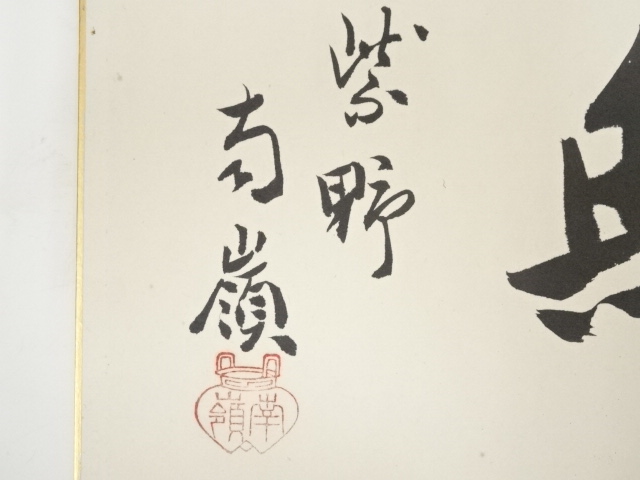 紫野
南嶺
南嶺